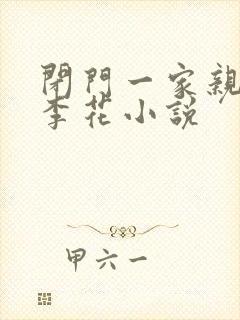 閉門一家親
李花小說
甲六一